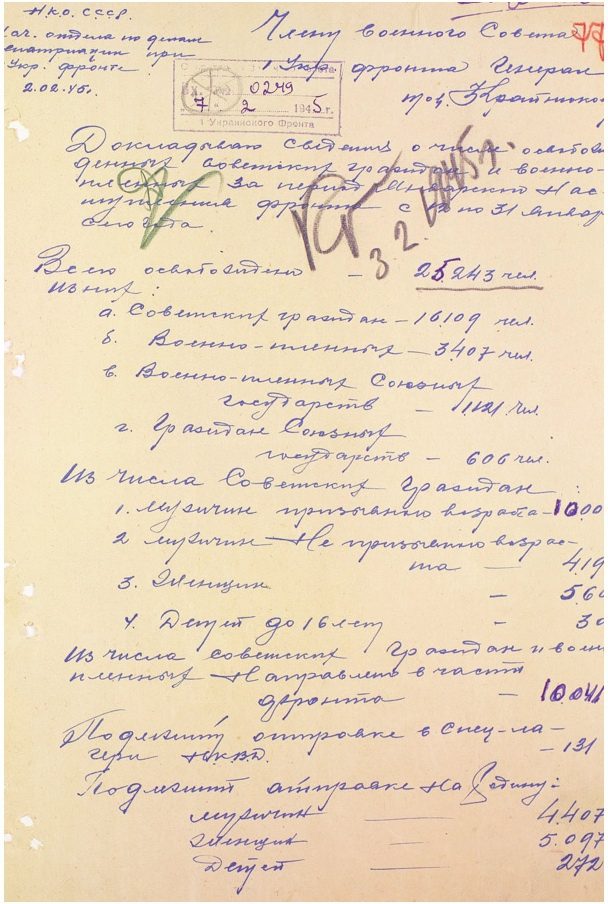 Н.К.О. СССР.
Нач. отдела по делам
репатриации при
1 Укр. фронте
2.02.45г.
Члену военного Совета
77
1 Укр. фронта Генерал
тов. Крайников
Вх. 0249
7 2 1945 г.
1 Украинского Фронта
Докладываю сведения о числе освобож
денных советских граждан и военно-
пленных за период Январского Нас
тупления фронта с по 31 январ
сего года.
3.2.1945г.
Всего освобождено – 25 243 чел.
Из них:
а. Советских граждан – 16109 чел.
б. Военно-пленных – 3407 чел.
в. Военно-пленных Союзных
государств – 1121 чел.
г. Граждан Союзных
государств – 606 чел.
Из числа Советских Граждан:
1. мужчин призывного возраста – 10.00
2 мужчин Не призывного возрас-
та – 419
3. Женщин – 560
4. Детей до 16 лет – 30
Из числа советских Граждан и воен
пленных Направлено в части
фронта – 10.041
Подлежит отправке в спец-ла-
гери Н.К.В.Д. – 131
Подлежит отправке На Родину:
мужчин — 4.407
женщин — 5.097
Детей — 272